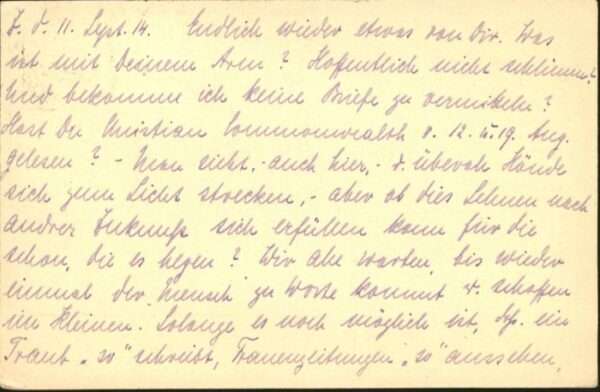 d. 11. Sept. 14. Endlich wieder etwas von Dir. Was
ist mit Deinem Arm? Hoffentlich nicht schlimm?
Und bekomme ich keine Briefe zu vermitteln?
Hast Du Christian Commonwealth v. 12. u. 19. Aug.
gelesen? - Man sieht, - auch hier, - d. überall Hände
sich zum Licht strecken, - aber ob dies Sehnen nach
andrer Zukunft sich erfüllen kann für die
schon, die es hegen? Wir alle warten, bis wieder
einmal der Mensch zu Worte kommt u. schaffen
im Kleinen. Solange es noch möglich ist, ein
Traub "so" schreibt, Frauenzeitungen "so" aussehen,